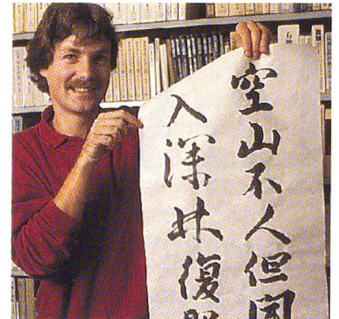 空山不人但聞
入深林復照